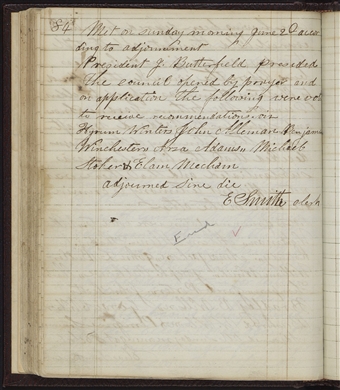 84
Met on sunday morning June 2d accor
ding to adjournment
President J. Butterfield presided
The council opened by prayer and
on application the following were vot
to receive recommendations, viz
Hyrum Winters John Alleman Benjamin
Winchester Asa Adams Micheal
Stoker & Elam Mecham
adjourned Sine die
E Smith clerk